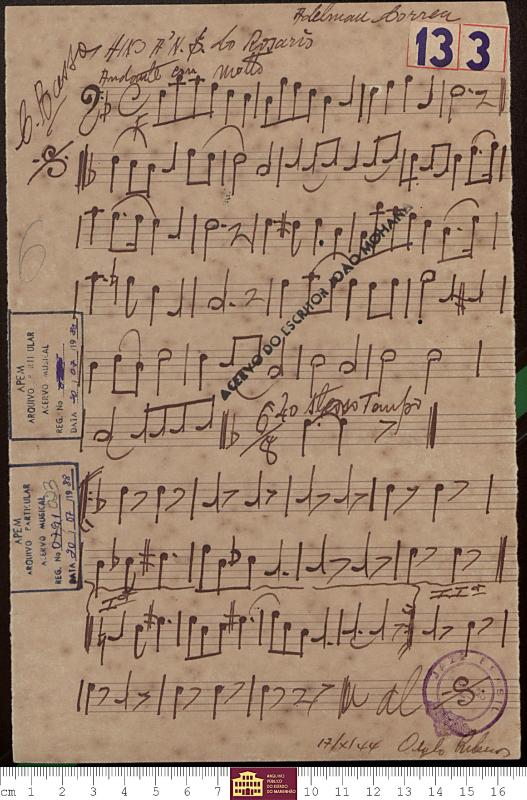 Adelman Correa
13 3
C. Basso HINO A' N. S. do Rosario
Andante con motto
6
ACERVO DO ESCRITOR JOÃO MOHANA
APEM
ARQUIVO PARTICULAR
ACERVO MUSICAL
REG. No
DATA 20 / 07 / 1988
6/8 Lo stesso Tempo
APEM
ARQUIVO PARTICULAR
ACERVO MUSICAL
REG. No 0791/003
DATA 20 / 07 / 1988
Iª IIª
al
17/X/44
cm 1 2 3 4 5 6 7 8 9 10 11 12 13 14 15 16
ARQUIVO
PÚBLICO
DO ESTADO
DO MARANHÃO